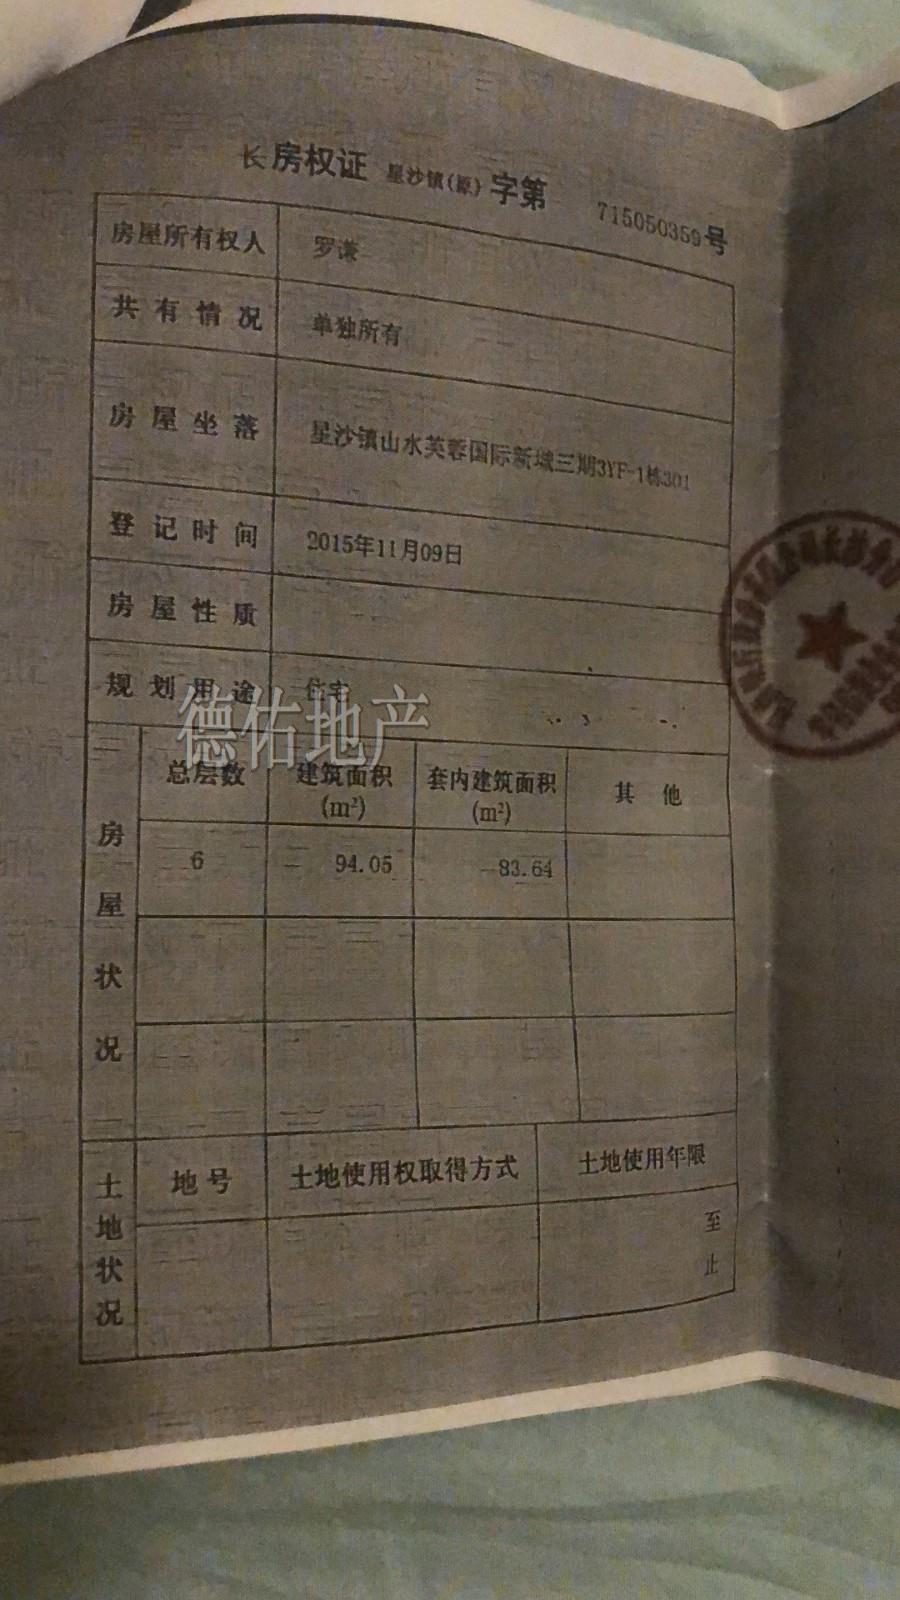 长房权证 星沙镇(原) 字第 715050359号
房屋所有权人 罗谦
共有情况 单独所有
房屋坐落 星沙镇山水芙蓉国际新城三期3YF-1栋301
登记时间 2015年11月09日
房屋性质
规划用途 住宅
德佑地产
房屋状况
总层数 建筑面积(m²) 套内建筑面积(m²) 其他
6 94.05 83.64
土地状况
地号 土地使用权取得方式 土地使用年限
至
止